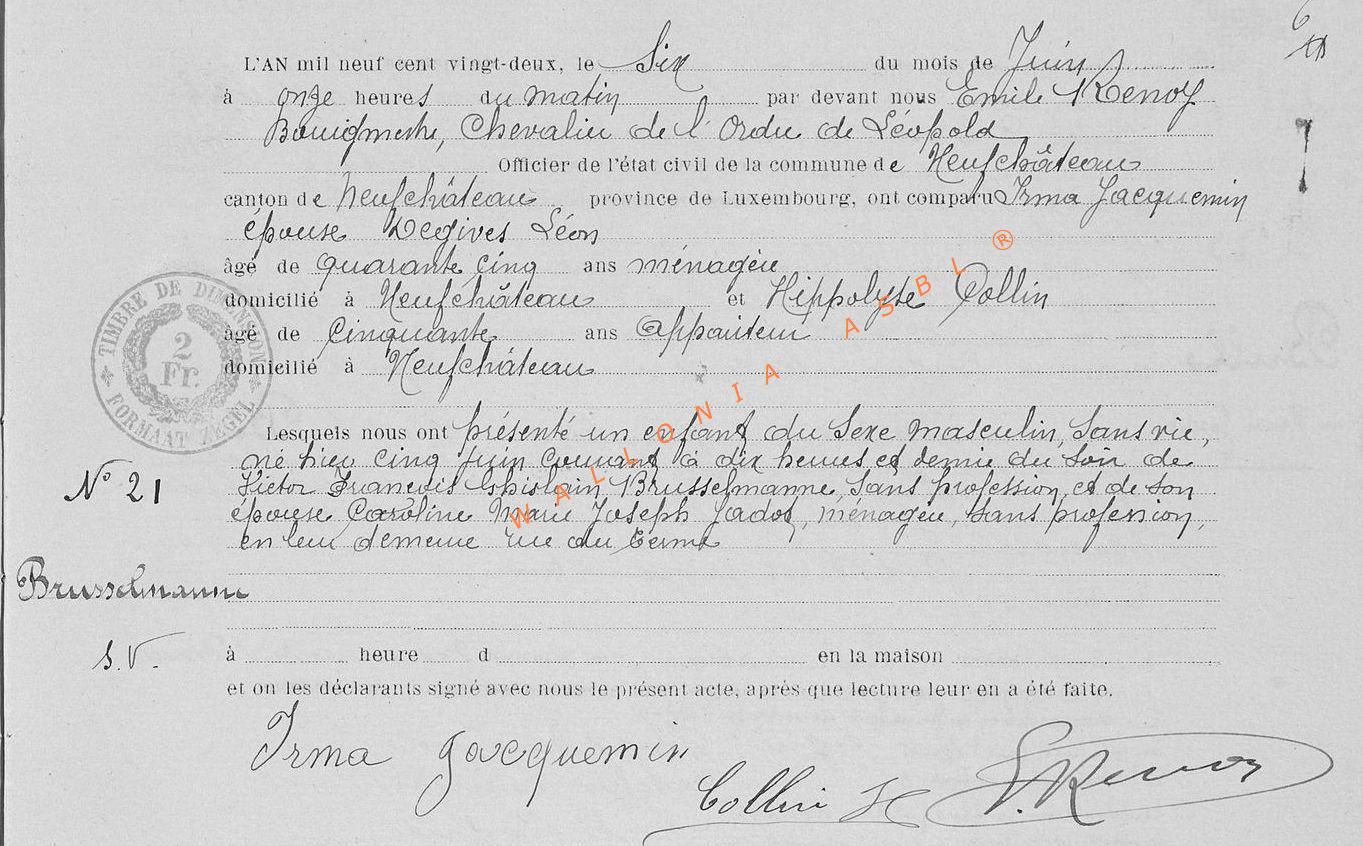 6
L'AN mil neuf cent vingt-deux, le Six du mois de Juin
à onze heures du matin par devant nous Emile Renoy
Bourgmestre, Chevalier de l'Ordre de Léopold
Officier de l'état civil de la commune de Neufchâteau
canton de Neufchâteau province de Luxembourg, ont comparu Irma Jacquemin
épouse Degives Léon
âgé de quarante cinq ans ménagère
domicilié à Neufchâteau et Hippolyte Collin
âgé de Cinquante ans appariteur
domicilié à Neufchâteau
Lesquels nous ont présenté un enfant du sexe masculin, sans vie,
né hier cinq Juin courant à dix heures et demie du soir de
Victor François Ghislain Brusselmanne, sans profession, et de son
épouse Caroline Marie Joseph Jadot, ménagère, sans profession,
en leur demeure rue du
N° 21
Brusselmanne
S.V.
à heure d en la maison
et on les déclarants signé avec nous le présent acte, après que lecture leur en a été faite.
Irma Jacquemin
Collin H
E. Renoy
TIMBRE DE DIMENSION
2
Fr.
FORMAAT ZEGEL
WALLONIA ASBL ®